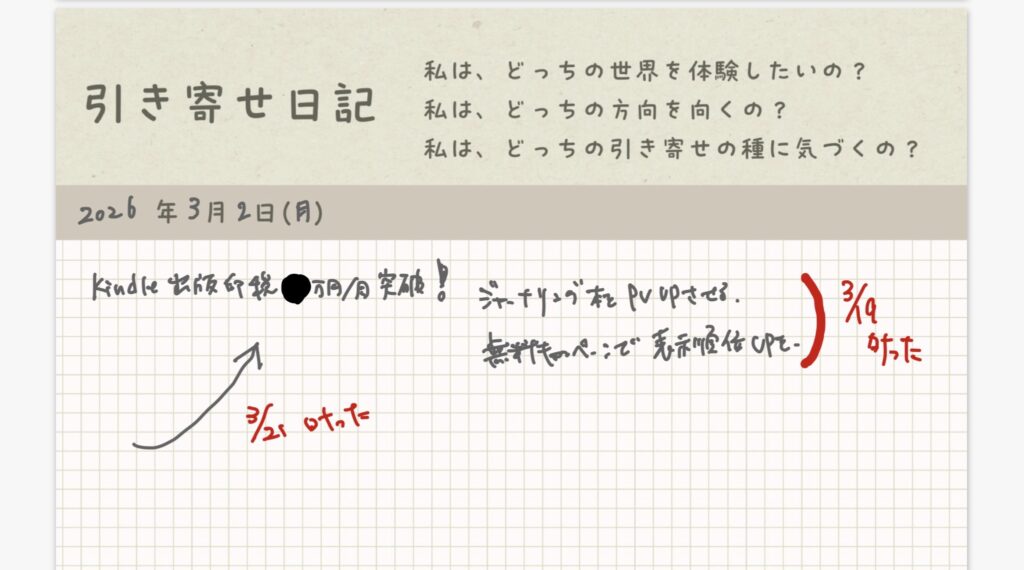 引き寄せ日記
私は、どっちの世界を体験したいの？
私は、どっちの方向を向くの？
私は、どっちの引き寄せの種に気づくの？
2026年3月2日(月)
Kindle出版印税 万円/月突破！
ジャーナリング本をPVUPさせる.
無料キャンペーンで表示順位UPを.
3/19
かった
3/21 かった